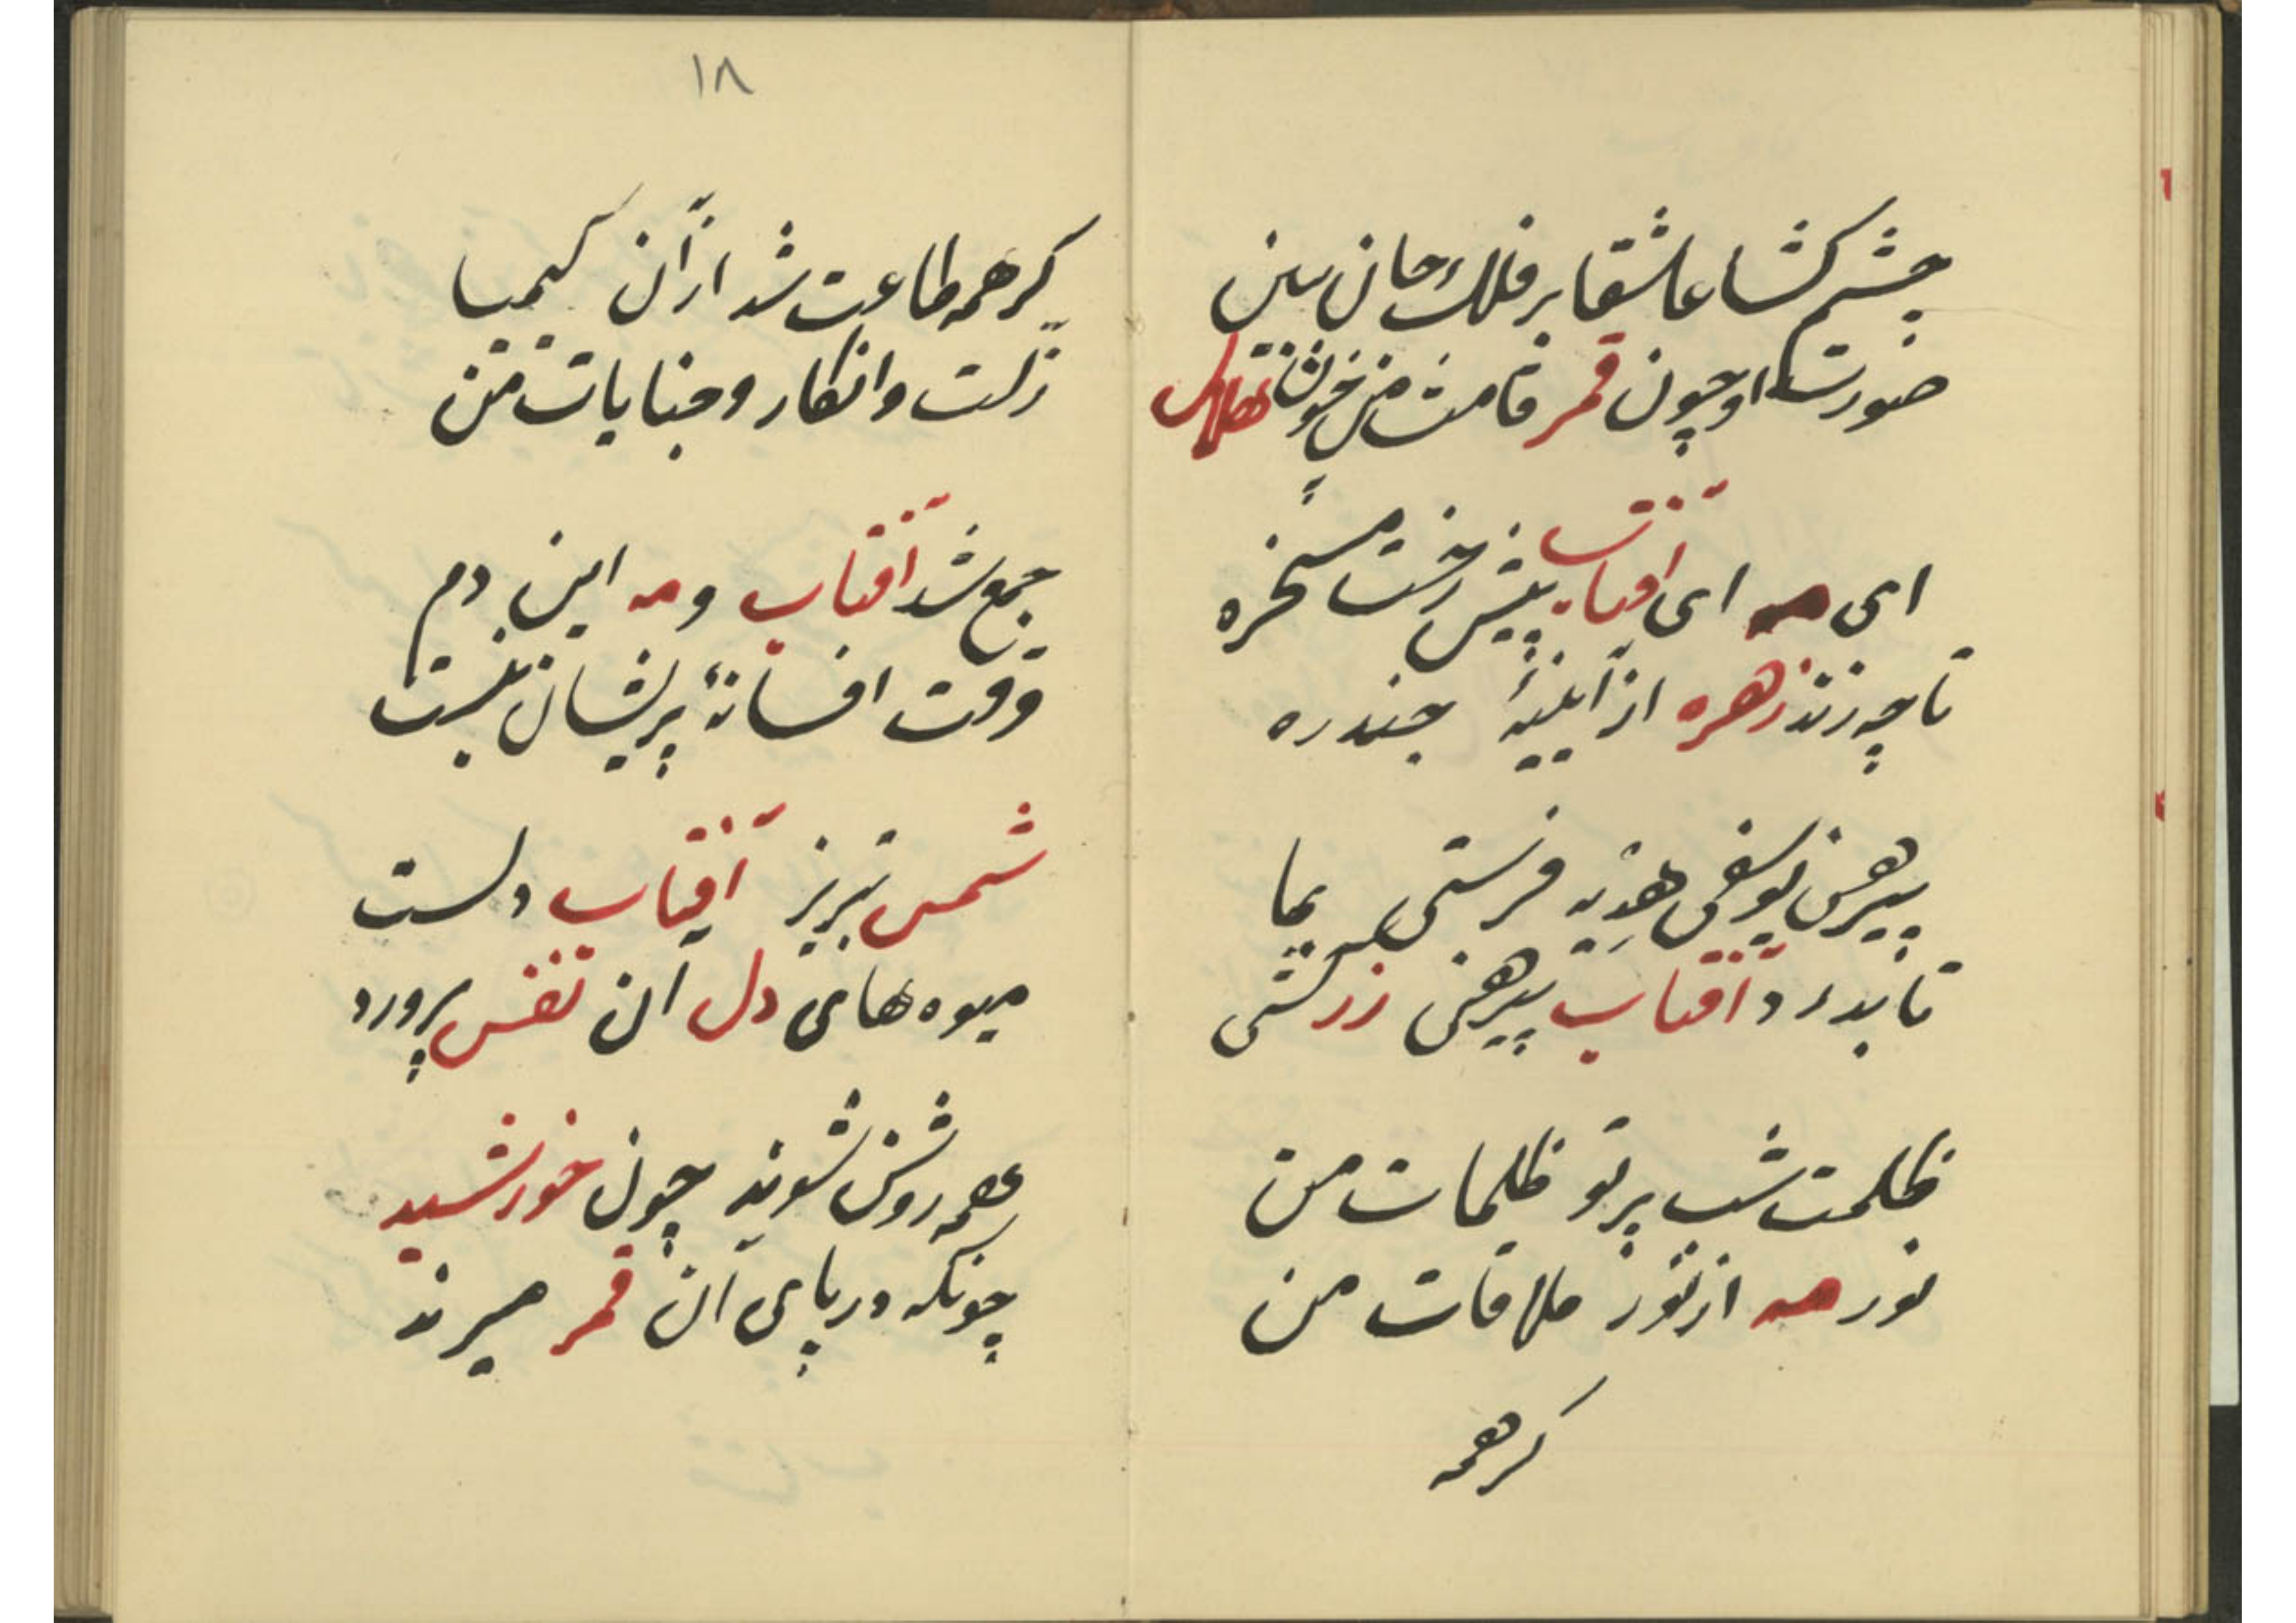 چشم کشا عاشقا بر فلک جان ببین
صورت او چون قمر قامت من چون هلال
ای مه ای آفتاب پیش رخت مسخره
تا چه زند زهره از آیینهٔ جندره
پیرهن یوسفی هدیه فرستی بما
تا بدرد آفتاب پیرهن زرکشی
ظلمت شب پرتو ظلمات من
نور مه از نور ملاقات من
کرهمه
۱۸
کرهمه طاعت شد از آن کیمیا
زلت و انکار و جنایات من
جمع شد آفتاب و مه این دم
وقت افسانهٔ پریشان نیست
شمس تبریز آفتاب دلست
میوه های دل آن تفس پرورد
همه روشن شوند چون خورشید
چونکه در پای آن قمر میرند